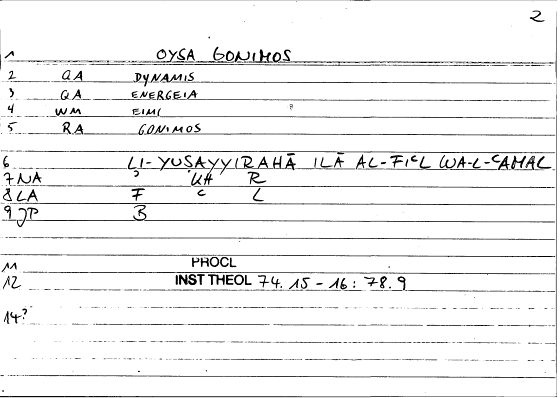 2
1 OYSA GONIMOS
2 QA DYNAMIS
3 QA ENERGEIA
4 WM EIMI
5 RA GONIMOS
6 LI-YUṢAYYIRAHĀ ILĀ AL-FIᶜL WA-L-ᶜAMAL
7 NA R
8 LA F ᶜ L
9 JP B
11 PROCL
12 INST THEOL 74. 15-16: 78.9
14?